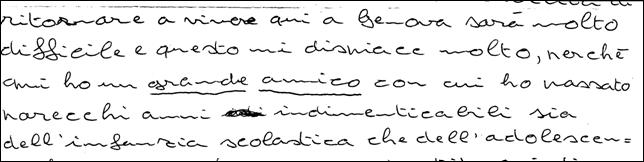 ritornare a vivere qui a Genova sarà molto
difficile e questo mi dispiace molto, perchè
qui ho un grande amico con cui ho passato
parecchi anni indimenticabili sia
dell'infanzia scolastica che dell'adolescen=